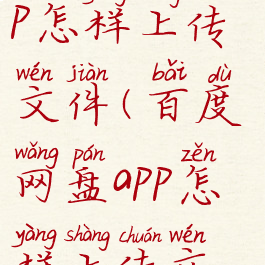 p怎样上传
wén jiàn bǎi dù
文件(百度
wǎng pán zěn
网盘app怎
yàng shàng chuán wén
样上传文